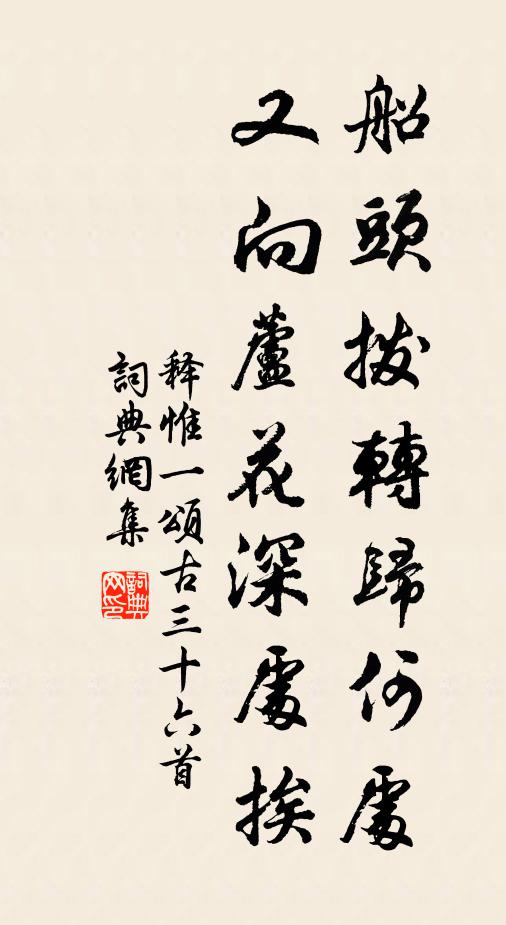 船頭撥轉歸何處
又向蘆花深處挨
释惟一頌古三十六首
詞典網集
詞典网印